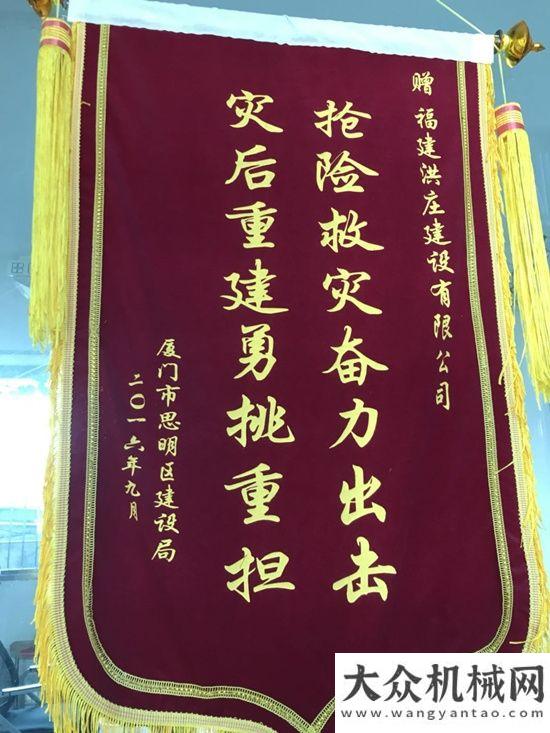 赠 福建洪庄建设有限公司
抢险救灾奋力出击
灾后重建勇挑重担
厦门市思明区建设局
二〇一六年九月
大众机械网
www.wangyantao.com